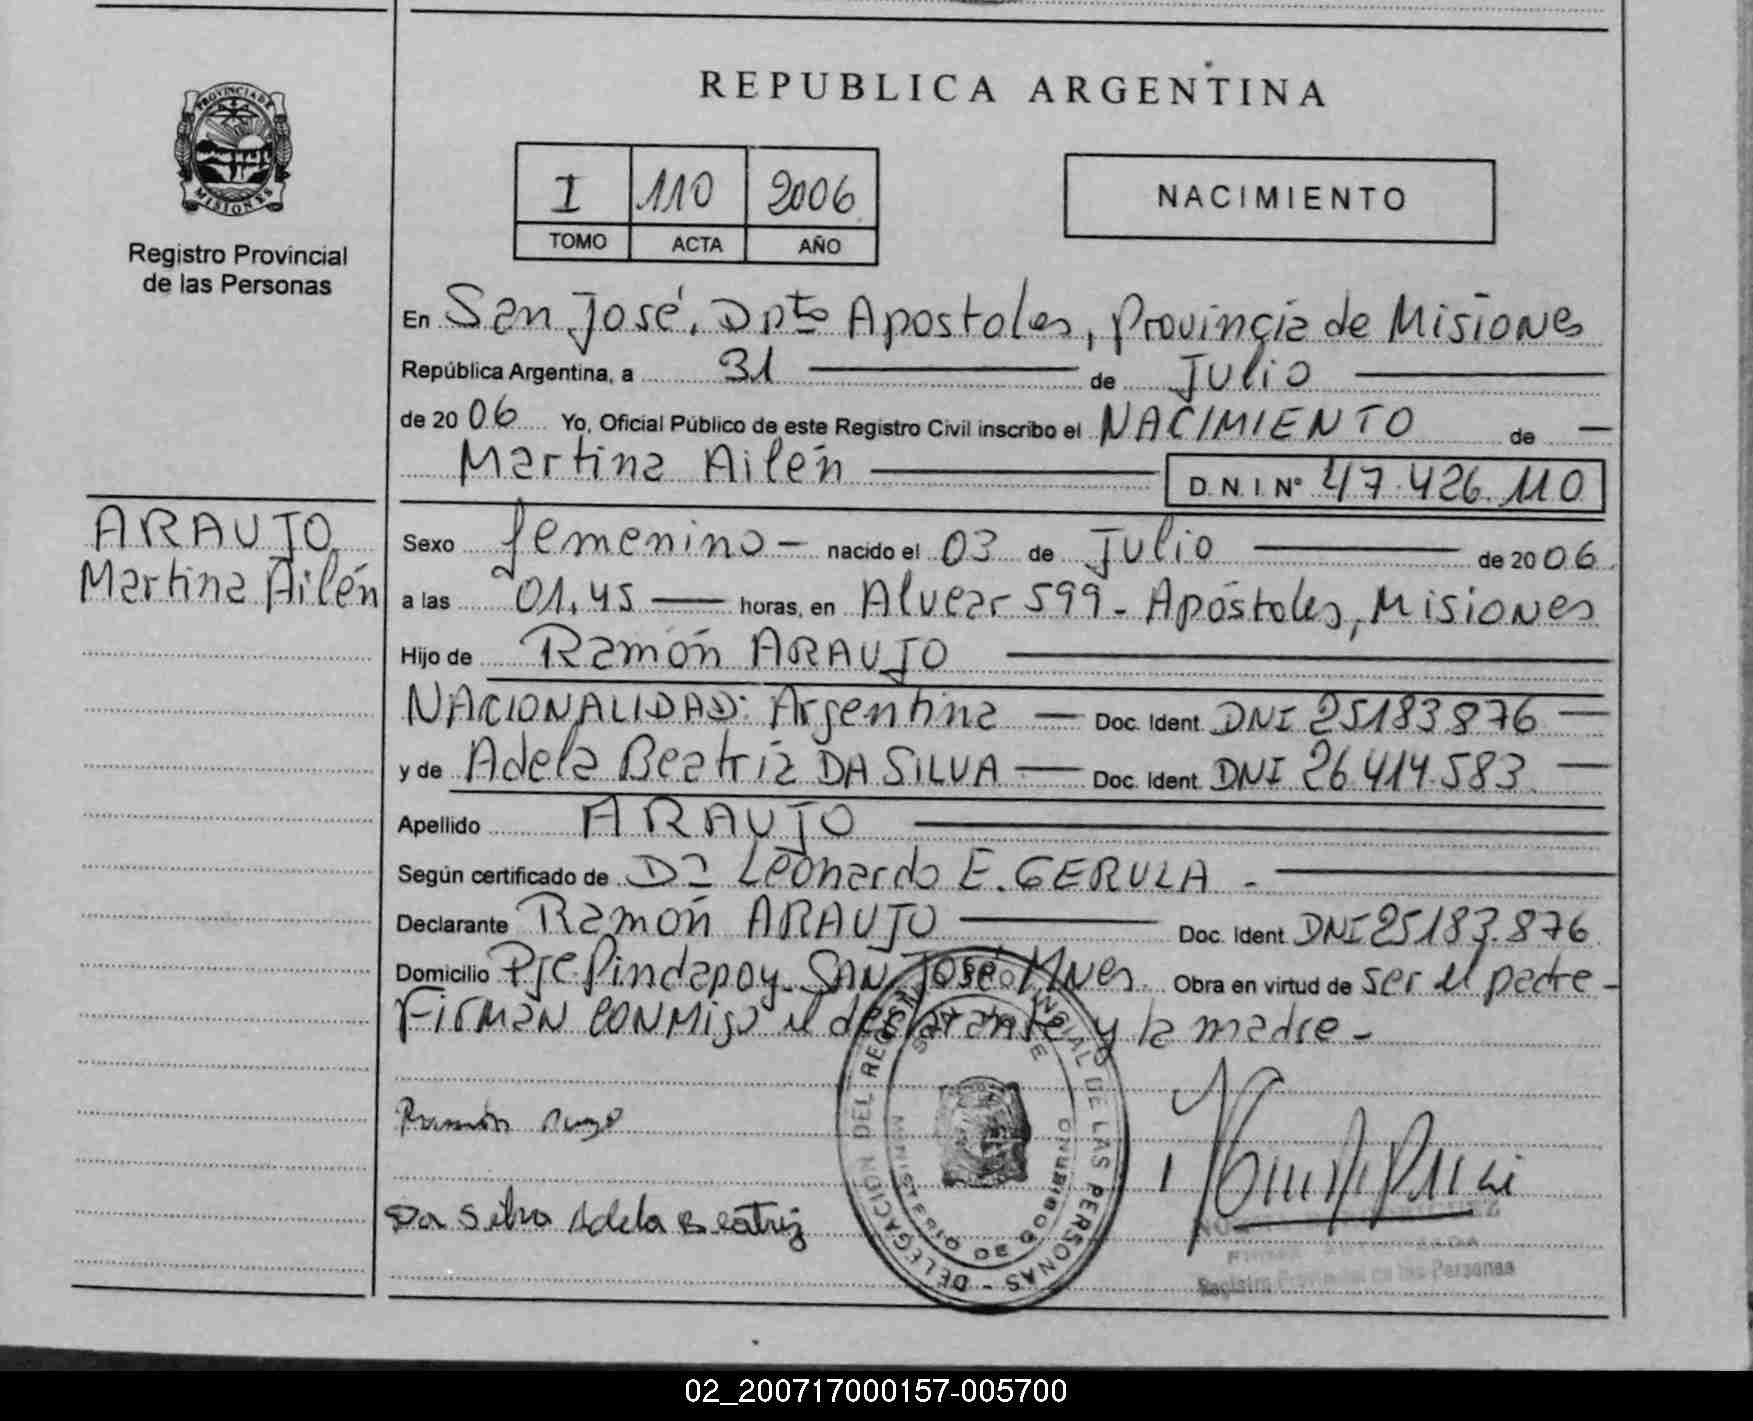 REPUBLICA ARGENTINA
PROVINCIA DE MISIONES
Registro Provincial
de las Personas
I 110 2006
TOMO ACTA AÑO
NACIMIENTO
En San José, Dpto Apostoles, Provincia de Misiones
República Argentina, a 31 de Julio
de 2006 Yo, Oficial Público de este Registro Civil inscribo el NACIMIENTO de
Martina Ailén D.N.I. Nº 47.426.110
ARAUJO,
Martina Ailén
Sexo femenino nacido el 03 de Julio de 2006
a las 01,45 horas, en Alvear 599 - Apóstoles, Misiones
Hijo de Ramón ARAUJO
NACIONALIDAD: Argentina Doc. Ident. DNI 25183.876
y de Adela Beatriz DA SILVA Doc. Ident. DNI 26.414.583
Apellido ARAUJO
Según certificado de Leonardo E. GERULA -
Declarante Ramón ARAUJO Doc. Ident. DNI 25183.876
Domicilio Pje Pindapoy - SAN José Mnes. Obra en virtud de ser el padre -
Firman conmigo el declarante y la madre -
Ramón
Da Silva Adela Beatriz
DELEGACION DEL REGISTRO PROVINCIAL DE LAS PERSONAS
Registro Provincial de las Personas
02_200717000157-005700